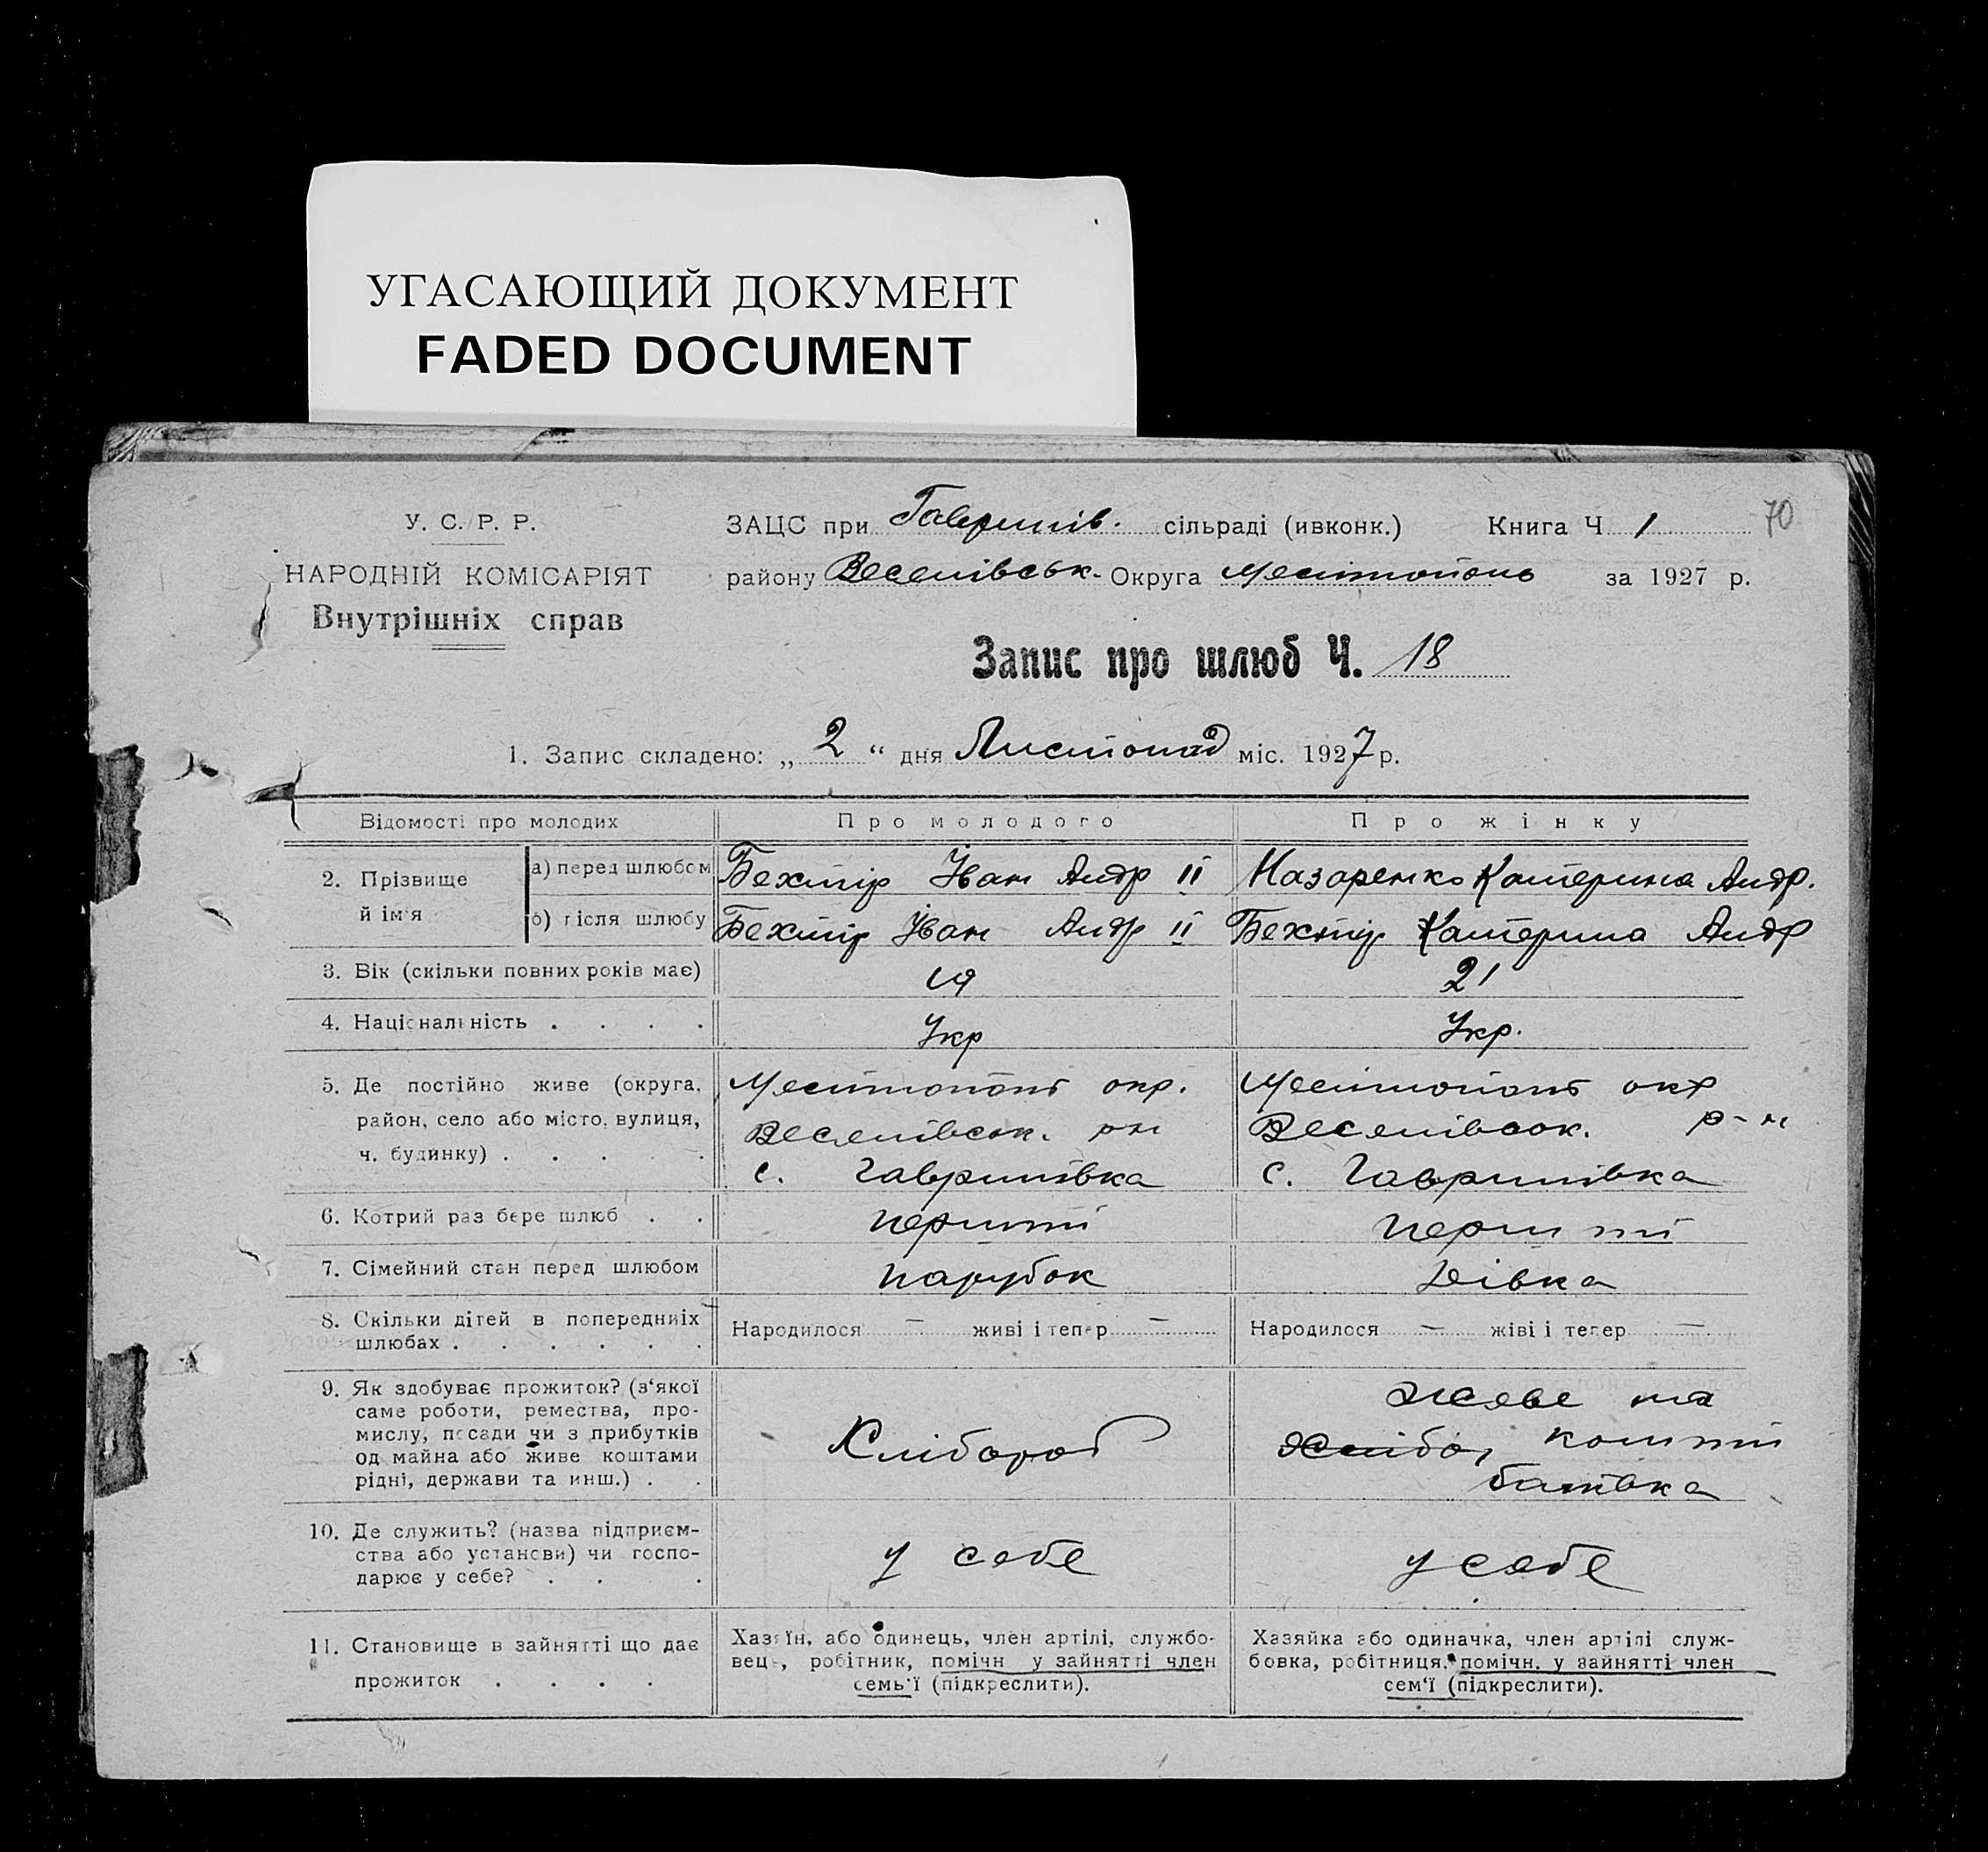 УГАСАЮЩИЙ ДОКУМЕНТ
FADED DOCUMENT
70
У. С. Р. Р.
НАРОДНІЙ КОМІСАРІЯТ
Внутрішніх справ
ЗАЦС при Гаврилів. сільраді (ивконк.) Книга Ч 1
району Веселівськ. Округа Мелітополь за 1927 р.
Запис про шлюб Ч. 18
1. Запис складено: „ 2 “ дня Листопад міс. 1927 р.
Відомості про молодих Про молодого Про жінку
2. Прізвище й ім'я
а) перед шлюбом Бехтір Іван Андр II Назаренко Катерина Андр.
б) після шлюбу Бехтір Іван Андр II Бехтір Катерина Андр
3. Вік (скільки повних років має) 19 21
4. Національність . . . . Укр Укр.
5. Де постійно живе (округа, Мелітополь окр. Мелітополь окр
район, село або місто, вулиця, Веселівськ. рн Веселівськ. р-н
ч. будинку) . . . . . с. Гаврилівка с. Гаврилівка
6. Котрий раз бере шлюб . . перший перший
7. Сімейний стан перед шлюбом парубок дівка
8. Скільки дітей в попередніх Народилося — живі і тепер — Народилося — жіві і тепер —
шлюбах . . . . . .
9. Як здобуває прожиток? (з'якої
саме роботи, ремества, про-
мислу, посади чи з прибутків
од майна або живе коштами
рідні, держави та инш.) . .
Хлібороб
живе на
хлібо, кошти
батівка
10. Де служить? (назва підприєм-
ства або установи) чи госпо-
дарює у себе? . . .
у себе у себе
11. Становище в зайнятті що дає
прожиток . . . .
Хазяїн, або одинець, член артілі, службо-
вець, робітник, помічн у зайнятті член
семь'ї (підкреслити).
Хазяйка або одиначка, член артілі служ-
бовка, робітниця, помічн. у зайнятті член
сем'ї (підкреслити).